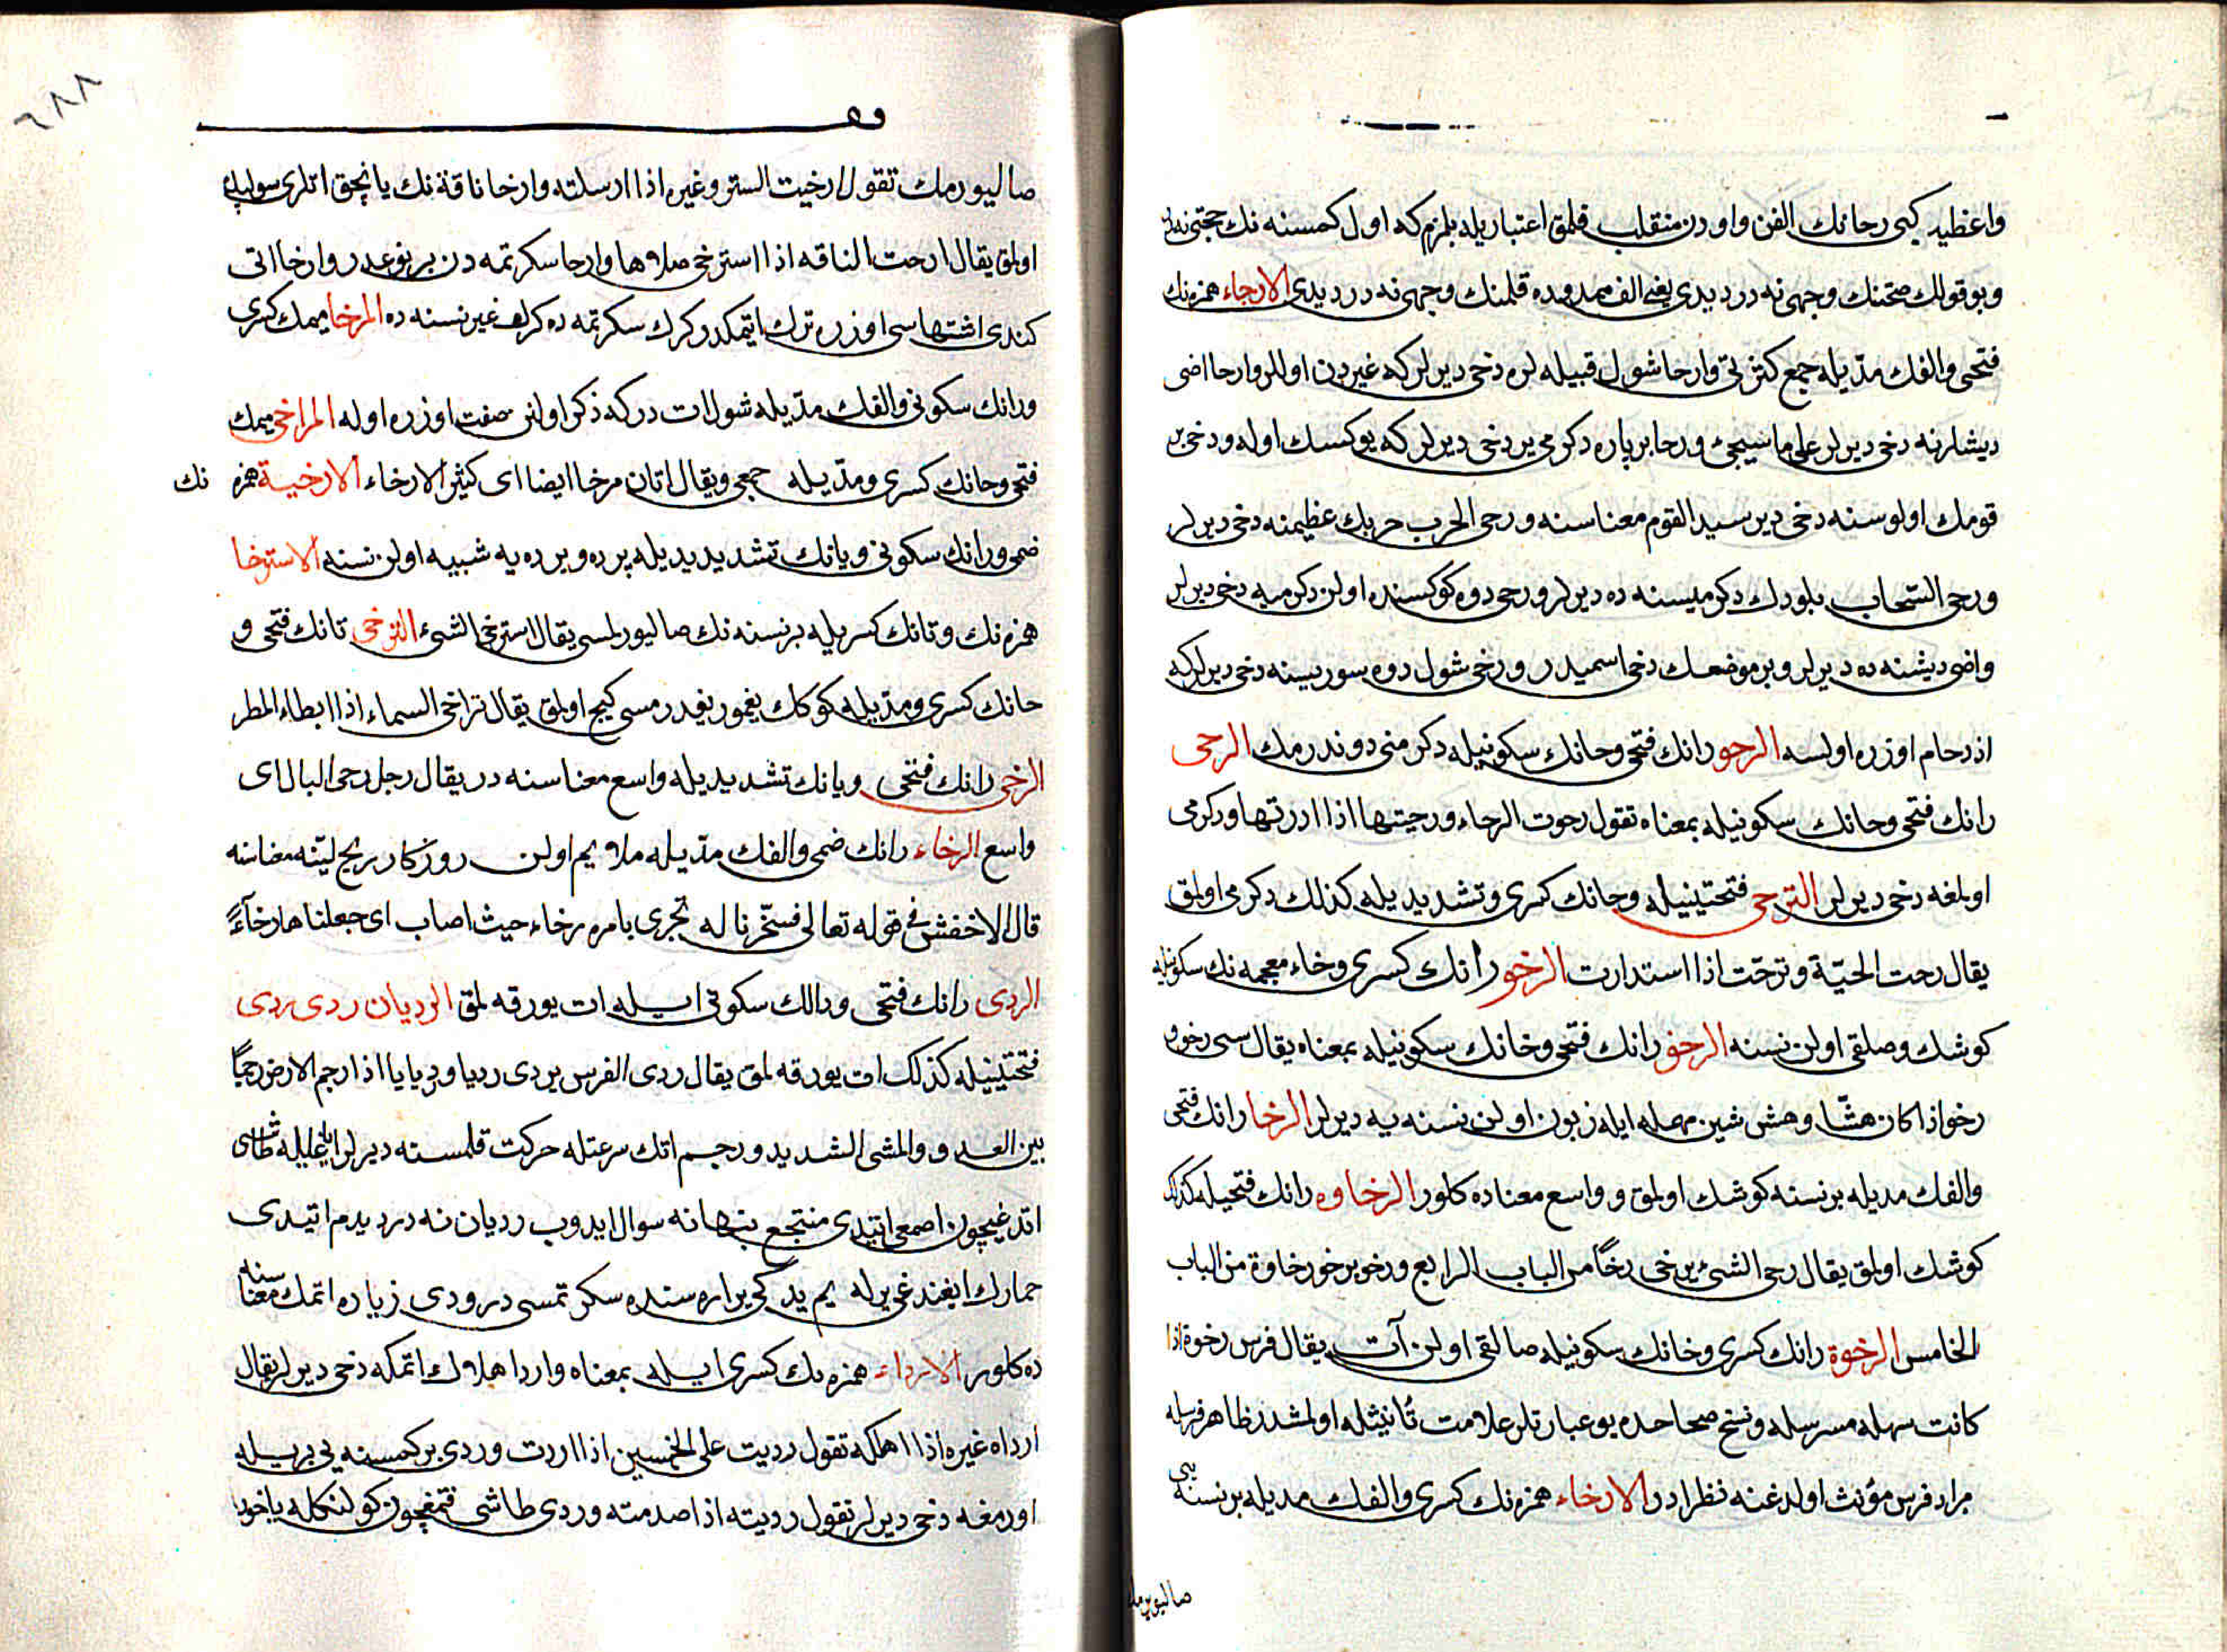 واعظيد كبى رحانك الفن واودن منقلب قلمق اعتباريله بلزم كه اول كمسنه نك حجتى نه در
وبو قولك صحتنك وجهى نه در ديدى يعنى الف ممدوده قلمنك وجهى نه در ديدى الارحاء همزه نك
فتحى والفك مديله جمع كثرتى وارحا شول قبيله لره دخى ديرلر كه غيردن اوللر وارحا اضى
ديشلرنه دخى ديرلر على ما سيجئ ورحا بر پاره دكرمى ير دخى ديرلر كه يوكسك اوله ودخى بر
قومك اولوسنه دخى دير سيد القوم معناسنه ورحى الحرب حربك عظيمنه دخى ديرلر
ورحى السحاب بلودك دكرميسنه ده ديرلر ورحى دوه كوكسنده اولن دكرميه دخى ديرلر
واضى ديشنه ده ديرلر وبر موضعك دخى اسميدر ورحى شول دوه سوريسنه دخى ديرلر كه
ازدحام اوزره اولسه الرحو رانك فتحى وحانك سكونيله دكرمنى دوندرمك الرحى
رانك فتحى وحانك سكونيله بمعناه تقول رحوت الرحاء ورحيتها اذا ادرتها ودكرمى
اولمغه دخى ديرلر الترحى فتحتينيله وحانك كسرى وتشديديله كذلك دكرمى اولمق
يقال رحت الحية وترحت اذا استدارت الرخو رانك كسرى وخاء معجمه نك سكونيله
كوشك وصلقى اولن نسنه الرخو رانك فتحى وخانك سكونيله بمعناه يقال شى رخو و
رخو اذا كان هشا وهش شين مهمله ايله زبون اولن نسنه يه ديرلر الرخا رانك فتحى
والفك مديله بر نسنه كوشك اولمق وواسع معناده كلور الرخاوه رانك فتحيله كذلك
كوشك اولمق يقال رخى الشئ يرخى رخا من الباب الرابع ورخو يرخو رخاوة من الباب
الخامس الرخوة رانك كسرى وخانك سكونيله صالقى اولن آت يقال فرس رخوة اذا
كانت سهله مسرسله ونسخ صحاحده بو عبارتلر علامت تأنيثله اولمشدر ظاهر فرسله
مراد فرس مؤنث اولدغنه نظرادر الارخاء همزه نك كسرى والفك مديله بر نسنه يى
صاليويرمك
٦٨٨
صاليورمك تقول ارخيت الستر وغيره اذا ارسلته وارخا ناقة نك يانجق اتلرى سولپك
اولمق يقال ارخت الناقه اذا استرخى صلاها وارخا سكرتمه دن بر نوعدر وارخا اتى
كندى اشتهاسى اوزره ترك اتمكدر كرك سكرتمه ده كرك غير نسنه ده المرخا ميمك كسرى
ورانك سكونى والفك مديله شول ات در كه ذكر اولنن صفت اوزره اوله المراخى ميمك
فتحى وخانك كسرى ومديله جمعى ويقال اتان مرخا ايضا اى كثير الارخاء الارخية همزه نك
ضمى ورانك سكونى ويانك تشديديله پرده ويرده يه شبيه اولن نسنه الاسترخا
همزه نك وتانك كسريله بر نسنه نك صاليورلمسى يقال استرخى الشئ الترخى تانك فتحى و
خانك كسرى ومديله كوكك يغمور يغدرمسى كيج اولمق يقال تراخى السماء اذا ابطاء المطر
الرخى رانك فتحى ويانك تشديديله واسع معناسنه در يقال رجل رخى البال اى
واسع الرخاء رانك ضمى والفك مديله ملايم اولن روزكار ريح لينه معناسنه
قال الاخفش فى قوله تعالى فسخرنا له تجرى بامره رخاء حيث اصاب اى جعلناها رخاءً
الردى رانك فتحى ودالك سكونى ايله ات يورقه لمق الرديان ردى يردى
فتحتينيله كذلك ات يورقه لمق يقال ردى الفرس يردى رديا ورديانا اذا رجم الارض رجمًا
بين العدو والمشى الشديد ورجم اتك سرعتله حركت قلمسنه ديرلر اياغيله طاشى
اتدغيچون اصمعى ايتدى منتجع بنهانه سوال ايدوب رديان نه در ديدم ايتدى
حمارك ايغندغى يرله يم يدكى ير اره سنده سكرتمسى در وردى زياده اتمك معناسنه
ده كلور الارداء همزه نك كسرى ايله بمعناه واردا هلاك اتمكه دخى ديرلر يقال
ارداه غيره اذا اهلكه تقول رديت على الخمسين اذا زدت وردى بر كمسنه يى بر يله
اورمغه دخى ديرلر تقول رديته اذا صدمته وردى طاشى قمغچون كولنكله ياخود